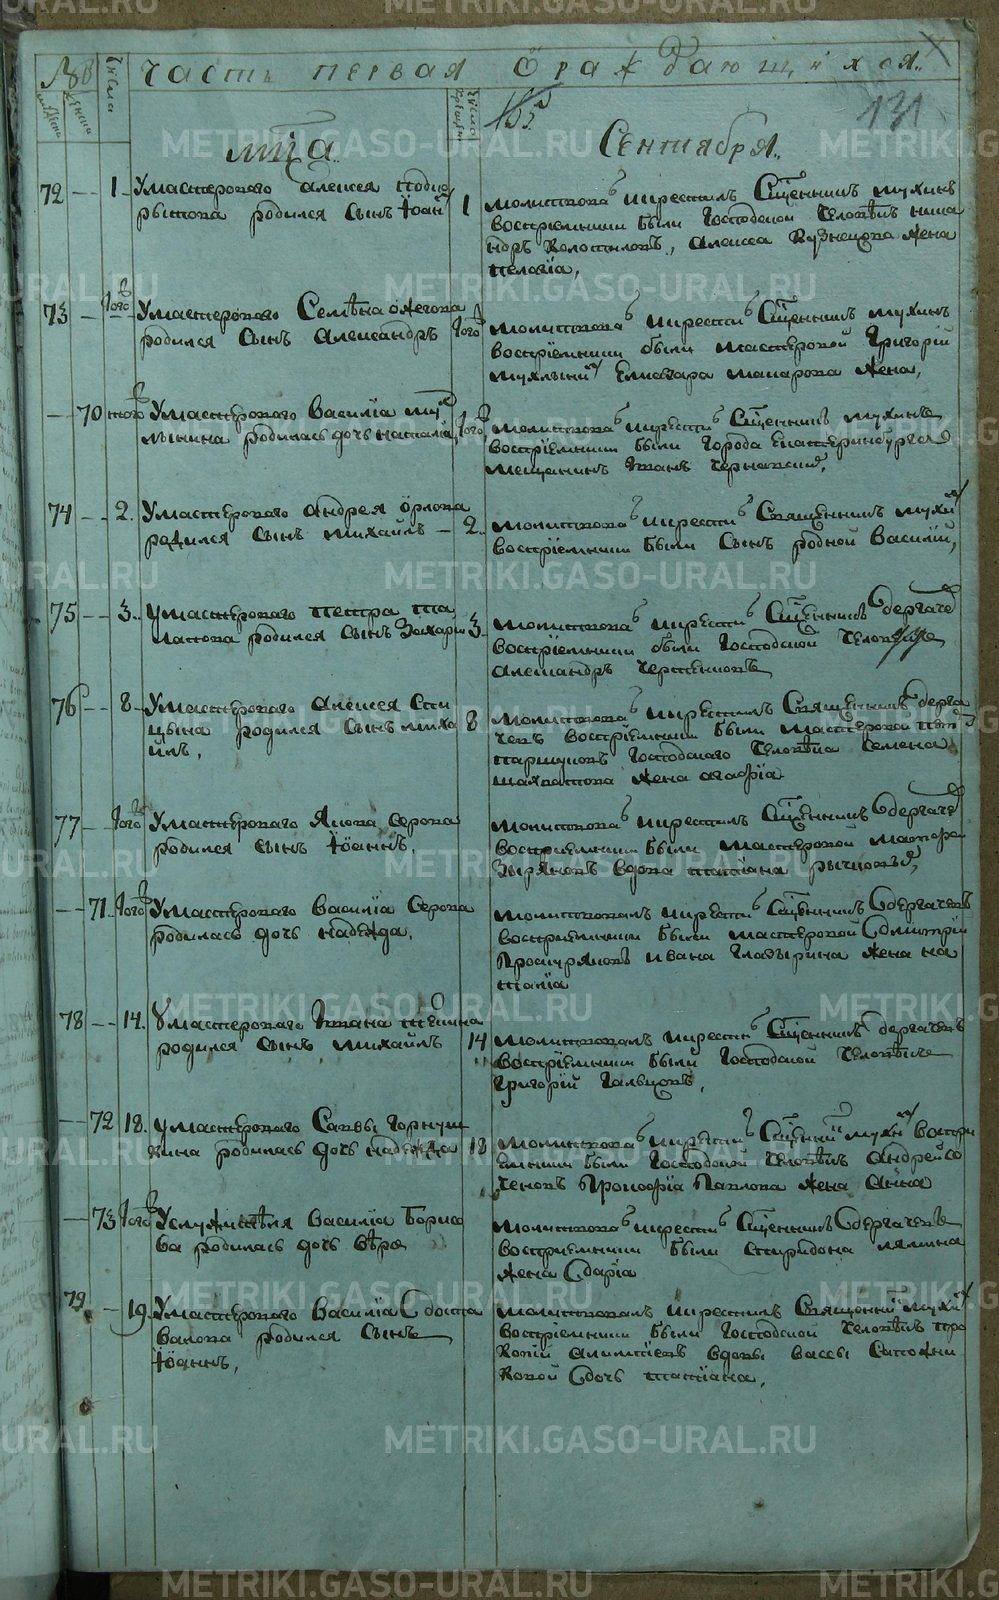 Часть первая ораждающихся.
155
131
мца
Сентября.
72 1 Умастероваго алексея подко
рытова родился сынъ Iоан
1 молитвова и крестилъ Сщенникъ мухинъ
восприемники были Господской человѣкъ ника
ндръ Колотиловъ, алексеа Кузнецова жена
пелагiа,
73 того Умастероваго Семѣна ожегова
родился сынъ александръ
того молитвова и крести Сщенникъ мухинъ
восприемники были мастеровой Григорiй
мухлынин Елизара макарова жена,
70 того Умастероваго василiа му
лынина родилась дочь наталiа,
того молитвова и крести Сщенникъ мухинъ
восприемники были города екатеринбурга
мещанинъ иванъ
74 2. Умастероваго андрея орлова
родился сынъ михайлъ
2. молитвова и крести Священникъ мухи
восприемники были сынъ родной василiй,
75 3. Умастероваго петра
родился сынъ Захарiй
3 молитвова и крести Сщенникъ дергаче
восприемники были Господской человѣче
александръ
76 8 Умастероваго алексея спи
цына родился сынъ миха
йлъ,
8 молитвова и крестилъ Священникъ дерга
чевъ восприемники были мастеровой петр
паршуковъ Господского человѣка семена
жена агафiа
77 того Умастероваго Якова серова
родился сынъ Iоаннъ,
молитвова и крестилъ Сщенникъ дергаче
восприемники были мастеровой
зыряновъ вдова татiана
71 того Умастероваго василiа Серова
родилась дочь надежда,
молитвовалъ и крести Сщенникъ дергачевъ
восприемники были мастеровой дмитрiй
Проскуряковъ ивана гладырина жена на
талiа
78 14. Умастероваго ивана тешина
родился сынъ михайлъ
14 молитвовалъ и крести Сщенникъ дергачевъ
восприемники были Господской человѣче
григорiй гальцовъ,
72 18. Умастероваго Савы горнуш
кина родилась дочь надежда
18 молитвова и крести Сщенник мухи воспри
емники были Господской человѣкъ андрей со
Прокофiа Павлова жена анна
73 того Услужителя василiа Борисо
ва родилась дочь вѣра
молитвова и крести Сщенникъ дергачевъ
восприемники были спиридона лямина
жена дарiа
79. 19. Умастероваго василiа доста
валова родился сынъ
Iоаннъ,
молитвовалъ и крестилъ Священник мухи
восприемники были Господской человѣкъ про
копiй вдовы васвы сапожни
ковой дочь татiана,
METRIKI.GASO-URAL.RU